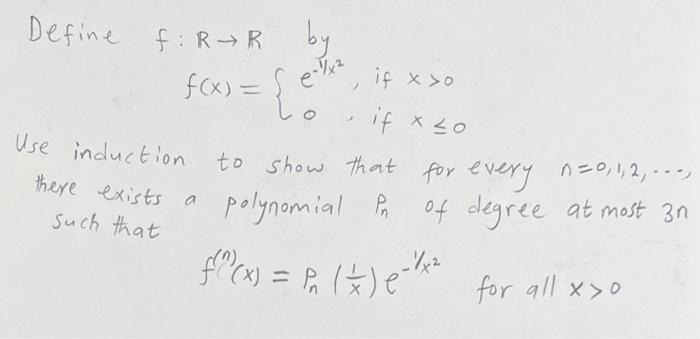 Define f : R → R by
f(x) = { e^{-1/x^2}, if x > 0
0, if x ≤ 0
Use induction to show that for every n=0,1,2,...,
there exists a polynomial P_n of degree at most 3n
such that
f^{(n)}(x) = P_n (1/x) e^{-1/x^2} for all x > 0